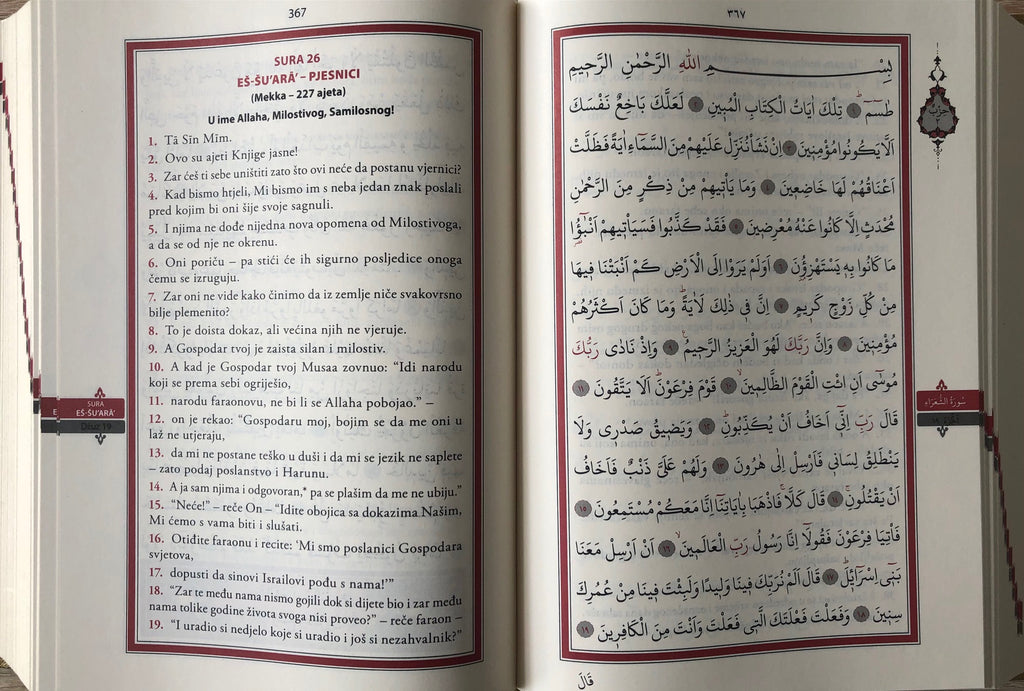 367
SURA 26
EŠ-ŠU‘ARĀ’ – PJESNICI
(Mekka – 227 ajeta)
U ime Allaha, Milostivog, Samilosnog!
1. Tā Sīn Mīm.
2. Ovo su ajeti Knjige jasne!
3. Zar ćeš ti sebe uništiti zato što ovi neće da postanu vjernici?
4. Kad bismo htjeli, Mi bismo im s neba jedan znak poslali
pred kojim bi oni šije svoje sagnuli.
5. I njima ne dođe nijedna nova opomena od Milostivoga,
a da se od nje ne okrenu.
6. Oni poriču – pa stići će ih sigurno posljedice onoga
čemu se izruguju.
7. Zar oni ne vide kako činimo da iz zemlje niče svakovrsno
bilje plemenito?
8. To je doista dokaz, ali većina njih ne vjeruje.
9. A Gospodar tvoj je zaista silan i milostiv.
10. A kad je Gospodar tvoj Musaa zovnuo: “Idi narodu
koji se prema sebi ogriješio,
11. narodu faraonovu, ne bi li se Allaha pobojao.” –
12. on je rekao: “Gospodaru moj, bojim se da me oni u
laž ne utjeraju,
13. da mi ne postane teško u duši i da mi se jezik ne saplete
– zato podaj poslanstvo i Harunu.
14. A ja sam njima i odgovoran,* pa se plašim da me ne ubiju.”
15. “Neće!” – reče On – “Idite obojica sa dokazima Našim,
Mi ćemo s vama biti i slušati.
16. Otiđite faraonu i recite: ‘Mi smo poslanici Gospodara
svjetova,
17. dopusti da sinovi Israilovi pođu s nama!’”
18. “Zar te među nama nismo gojili dok si dijete bio i zar među
nama tolike godine života svoga nisi proveo?” – reče faraon –
19. “I uradio si nedjelo koje si uradio i još si nezahvalnik?”
SURA
EŠ-ŠU‘ARĀ’
Džuz 19
٣٦٧
بِسْمِ اللّٰهِ الرَّحْمٰنِ الرَّحِيمِ
طٰسٓمٓ ١ تِلْكَ اٰيَاتُ الْكِتَابِ الْمُبِينِ ٢ لَعَلَّكَ بَاخِعٌ نَفْسَكَ
اَلَّا يَكُونُوا مُؤْمِنِينَ ٣ اِنْ نَشَأْ نُنَزِّلْ عَلَيْهِمْ مِنَ السَّمَٓاءِ اٰيَةً فَظَلَّتْ
اَعْنَاقُهُمْ لَهَا خَاضِعِينَ ٤ وَمَا يَأْتِيهِمْ مِنْ ذِكْرٍ مِنَ الرَّحْمٰنِ
مُحْدَثٍ اِلَّا كَانُوا عَنْهُ مُعْرِضِينَ ٥ فَقَدْ كَذَّبُوا فَسَيَأْتِيهِمْ اَنْبٰٓؤُا
مَا كَانُوا بِهِ يَسْتَهْزِؤُنَ ٦ اَوَلَمْ يَرَوْا اِلَى الْاَرْضِ كَمْ اَنْبَتْنَا فِيهَا
مِنْ كُلِّ زَوْجٍ كَرِيمٍ ٧ اِنَّ فِي ذٰلِكَ لَاٰيَةً وَمَا كَانَ اَكْثَرُهُمْ
مُؤْمِنِينَ ٨ وَاِنَّ رَبَّكَ لَهُوَ الْعَزِيزُ الرَّحِيمُ ٩ وَاِذْ نَادٰى رَبُّكَ
مُوسٰٓى اَنِ ائْتِ الْقَوْمَ الظَّالِمِينَ ١٠ قَوْمَ فِرْعَوْنَ اَلَا يَتَّقُونَ ١١
قَالَ رَبِّ اِنِّٓي اَخَافُ اَنْ يُكَذِّبُونِ ١٢ وَيَضِيقُ صَدْرِي وَلَا
يَنْطَلِقُ لِسَانِي فَاَرْسِلْ اِلٰى هٰرُونَ ١٣ وَلَهُمْ عَلَيَّ ذَنْبٌ فَاَخَافُ
اَنْ يَقْتُلُونِ ١٤ قَالَ كَلَّا فَاذْهَبَا بِاٰيَاتِنَٓا اِنَّا مَعَكُمْ مُسْتَمِعُونَ ١٥
فَأْتِيَا فِرْعَوْنَ فَقُولَٓا اِنَّا رَسُولُ رَبِّ الْعَالَمِينَ ١٦ اَنْ اَرْسِلْ مَعَنَا
بَنِٓي اِسْرَٓائِلَ ١٧ قَالَ اَلَمْ نُرَبِّكَ فِينَا وَلِيدًا وَلَبِثْتَ فِينَا مِنْ عُمُرِكَ
سِنِينَ ١٨ وَفَعَلْتَ فَعْلَتَكَ الَّتِي فَعَلْتَ وَاَنْتَ مِنَ الْكَافِرِينَ ١٩
قَالَ
سُورَةُ الشُّعَرَاءِ